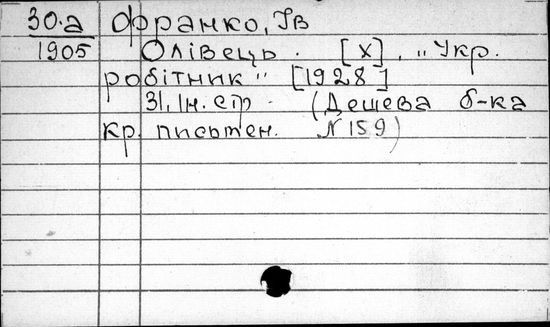 30.а Франко, Ів
1905 Олівець. [Х], „Укр.
робітник" [1928]
31, Ін. стр. (Дешева б-ка
кр. письмен. N 159)